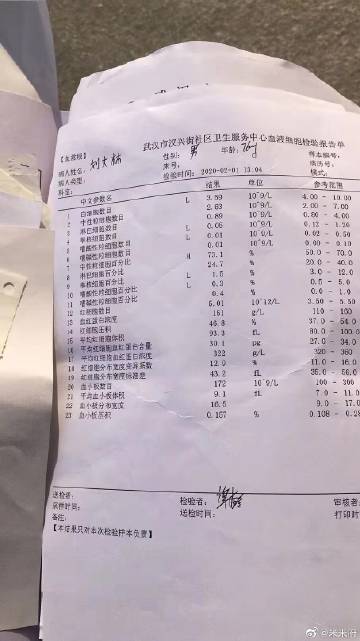 武汉市汉兴街社区卫生服务中心血液细胞检验报告单
【血常规】
病人姓名: 刘大 性别: 男 年龄: 样本编号:
病人类型: 床号: 病历号:
科室: 检验时间: 2020-02-01 13:04 模式:
中文参数名 结果 单位 参考范围
1 白细胞数目 L 3.59 10^9/L 4.00 - 10.00
2 中性粒细胞数目 2.63 10^9/L 2.00 - 7.00
3 淋巴细胞数目 0.89 10^9/L 0.80 - 4.00
4 单核细胞数目 L 0.05 10^9/L 0.12 - 1.20
5 嗜酸性粒细胞数目 L 0.01 10^9/L 0.02 - 0.50
6 嗜碱性粒细胞数目 0.01 10^9/L 0.00 - 0.10
7 中性粒细胞百分比 H 73.1 % 50.0 - 70.0
8 淋巴细胞百分比 24.7 % 20.0 - 40.0
9 单核细胞百分比 L 1.5 % 3.0 - 12.0
10 嗜酸性粒细胞百分比 L 0.3 % 0.5 - 5.0
11 嗜碱性粒细胞百分比 0.4 % 0.0 - 1.0
12 红细胞数目 5.01 10^12/L 3.50 - 5.50
13 血红蛋白浓度 151 g/L 110 - 160
14 红细胞压积 46.8 % 37.0 - 54.0
15 平均红细胞体积 93.3 fL 80.0 - 100.0
16 平均红细胞血红蛋白含量 30.1 pg 27.0 - 34.0
17 平均红细胞血红蛋白浓度 322 g/L 320 - 360
18 红细胞分布宽度变异系数 12.0 % 11.0 - 16.0
19 红细胞分布宽度标准差 43.2 fL 35.0 - 56.0
20 血小板数目 172 10^9/L 100 - 300
21 平均血小板体积 9.1 fL 7.0 - 11.0
22 血小板分布宽度 16.5 9.0 - 17.0
23 血小板压积 0.157 % 0.108 - 0.28
送检者: 检验者: 审核者:
采样时间: 送检时间: 打印时
备注:
【本结果只对本次检验样本负责】